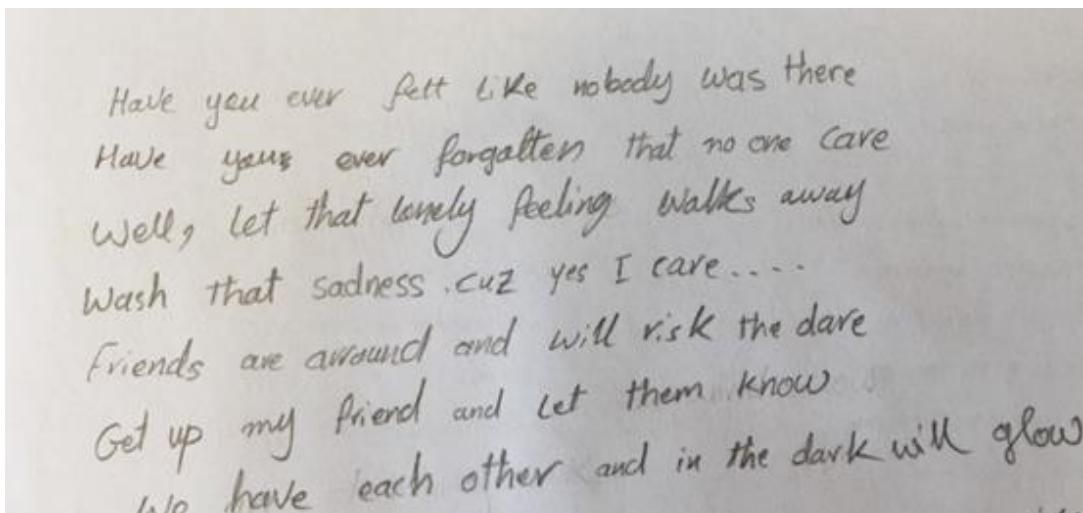 Have you ever felt like nobody was there
Have your ever forgatten that no one care
Well, let that lonely feeling walks away
Wash that sadness .cuz yes I care....
Friends are awaund and will risk the dare
Get up my friend and let them know
We have each other and in the dark will glow